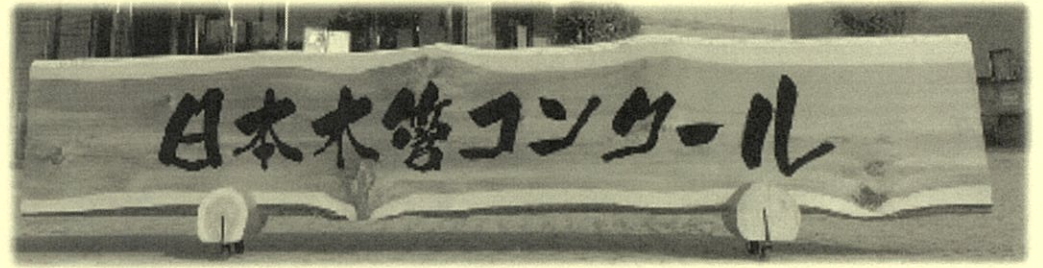 日本木管コンクール